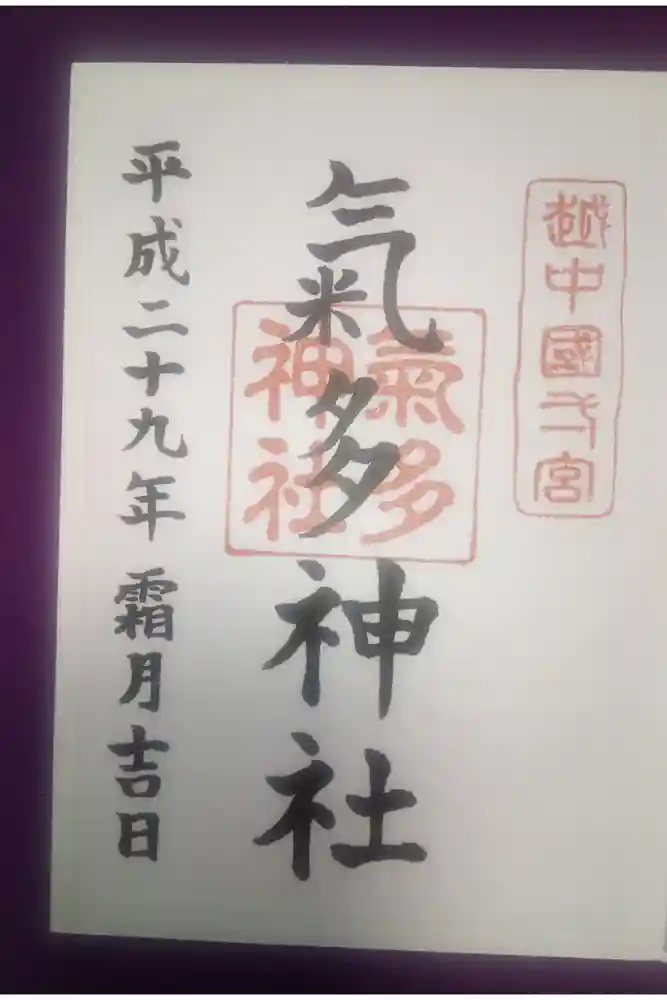 越中國一宮
氣多神社
氣多
神社
平成二十九年霜月吉日